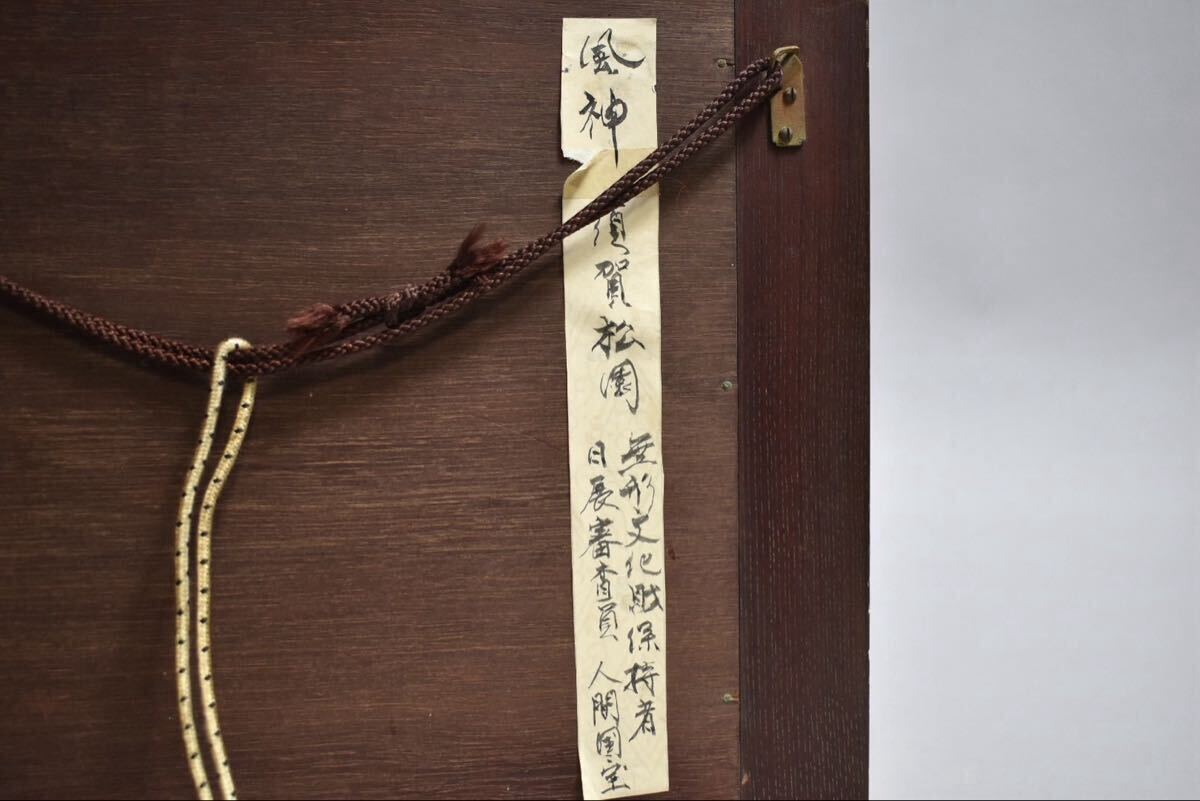 風神
須賀松園
無形文化財保持者
日展審査員 人間国宝